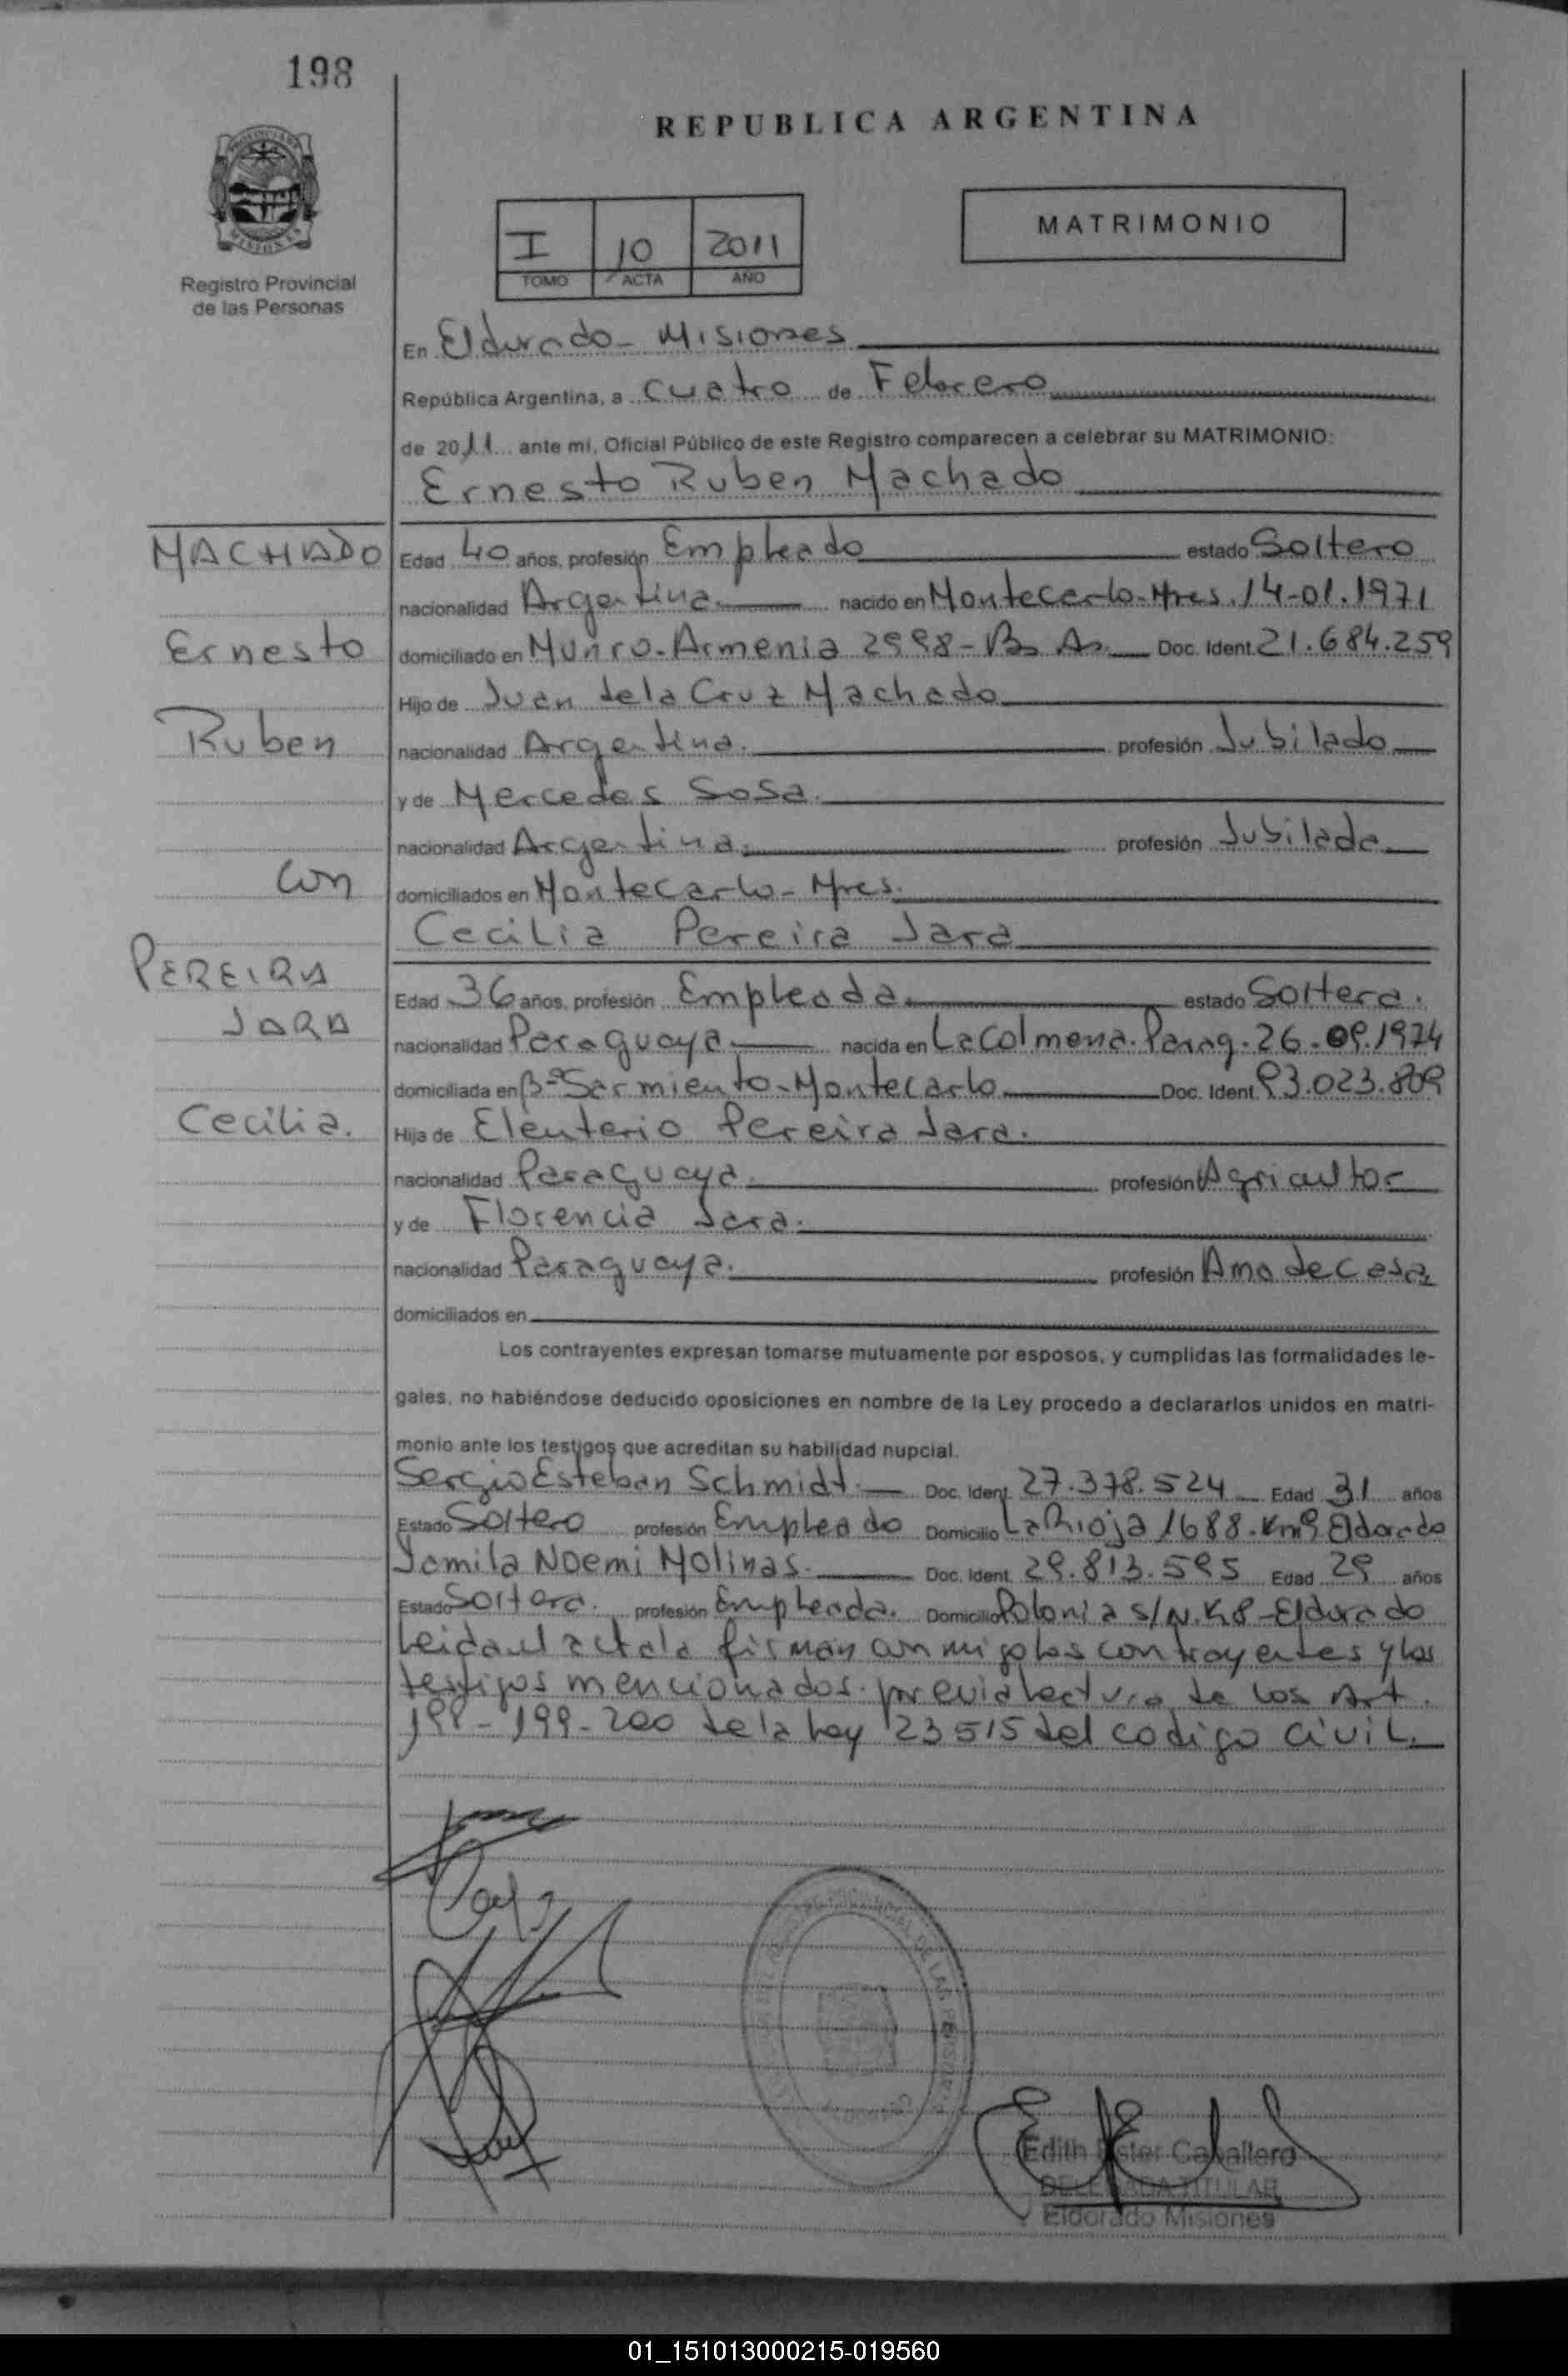 198
REPUBLICA ARGENTINA
PROVINCIA DE MISIONES
Registro Provincial
de las Personas
I 10 2011
TOMO ACTA AÑO
MATRIMONIO
En Eldorado - Misiones
República Argentina, a cuatro de Febrero
de 2011 ante mi, Oficial Público de este Registro comparecen a celebrar su MATRIMONIO:
Ernesto Ruben Machado
MACHADO
Ernesto
Ruben
con
PEREIRA
JARA
Cecilia.
Edad 40 años, profesión Empleado estado Soltero
nacionalidad Argentina. nacido en Montecarlo-Mnes. 14-01.1971
domiciliado en Munro-Armenia 2998-Bs As. Doc. Ident. 21.684.259
Hijo de Juan de la Cruz Machado
nacionalidad Argentina. profesión Jubilado
y de Mercedes Sosa.
nacionalidad Argentina. profesión Jubilada
domiciliados en Montecarlo-Mnes.
Cecilia Pereira Jara
Edad 36 años, profesión Empleada. estado Soltera.
nacionalidad Paraguaya nacida en La Colmena. Parag. 26.09.1974
domiciliada en Bº Sarmiento-Montecarlo Doc. Ident. 93.023.809
Hija de Eleuterio Pereira Jara.
nacionalidad Paraguaya. profesión Agricultor
y de Florencia Jara.
nacionalidad Paraguaya. profesión Ama de Casa
domiciliados en
Los contrayentes expresan tomarse mutuamente por esposos, y cumplidas las formalidades le-
gales, no habiéndose deducido oposiciones en nombre de la Ley procedo a declararlos unidos en matri-
monio ante los testigos que acreditan su habilidad nupcial.
Sergio Esteban Schmidt. Doc. Ident. 27.378.524 Edad 31 años
Estado Soltero profesión Empleado Domicilio La Rioja 1688. Km9 Eldorado
Jamila Noemi Molinas. Doc. Ident. 29.813.595 Edad 29 años
Estado Soltera. profesión Empleada. Domicilio Polonia S/N. K8-Eldorado
Leida el acta la firman con migo los contrayentes y los
testigos mencionados. previa lectura de los Art.
198-199-200 de la Ley 23515 del codigo civil.
Edith Ester Caballero
DELEGADA TITULAR
Eldorado Misiones
01_151013000215-019560